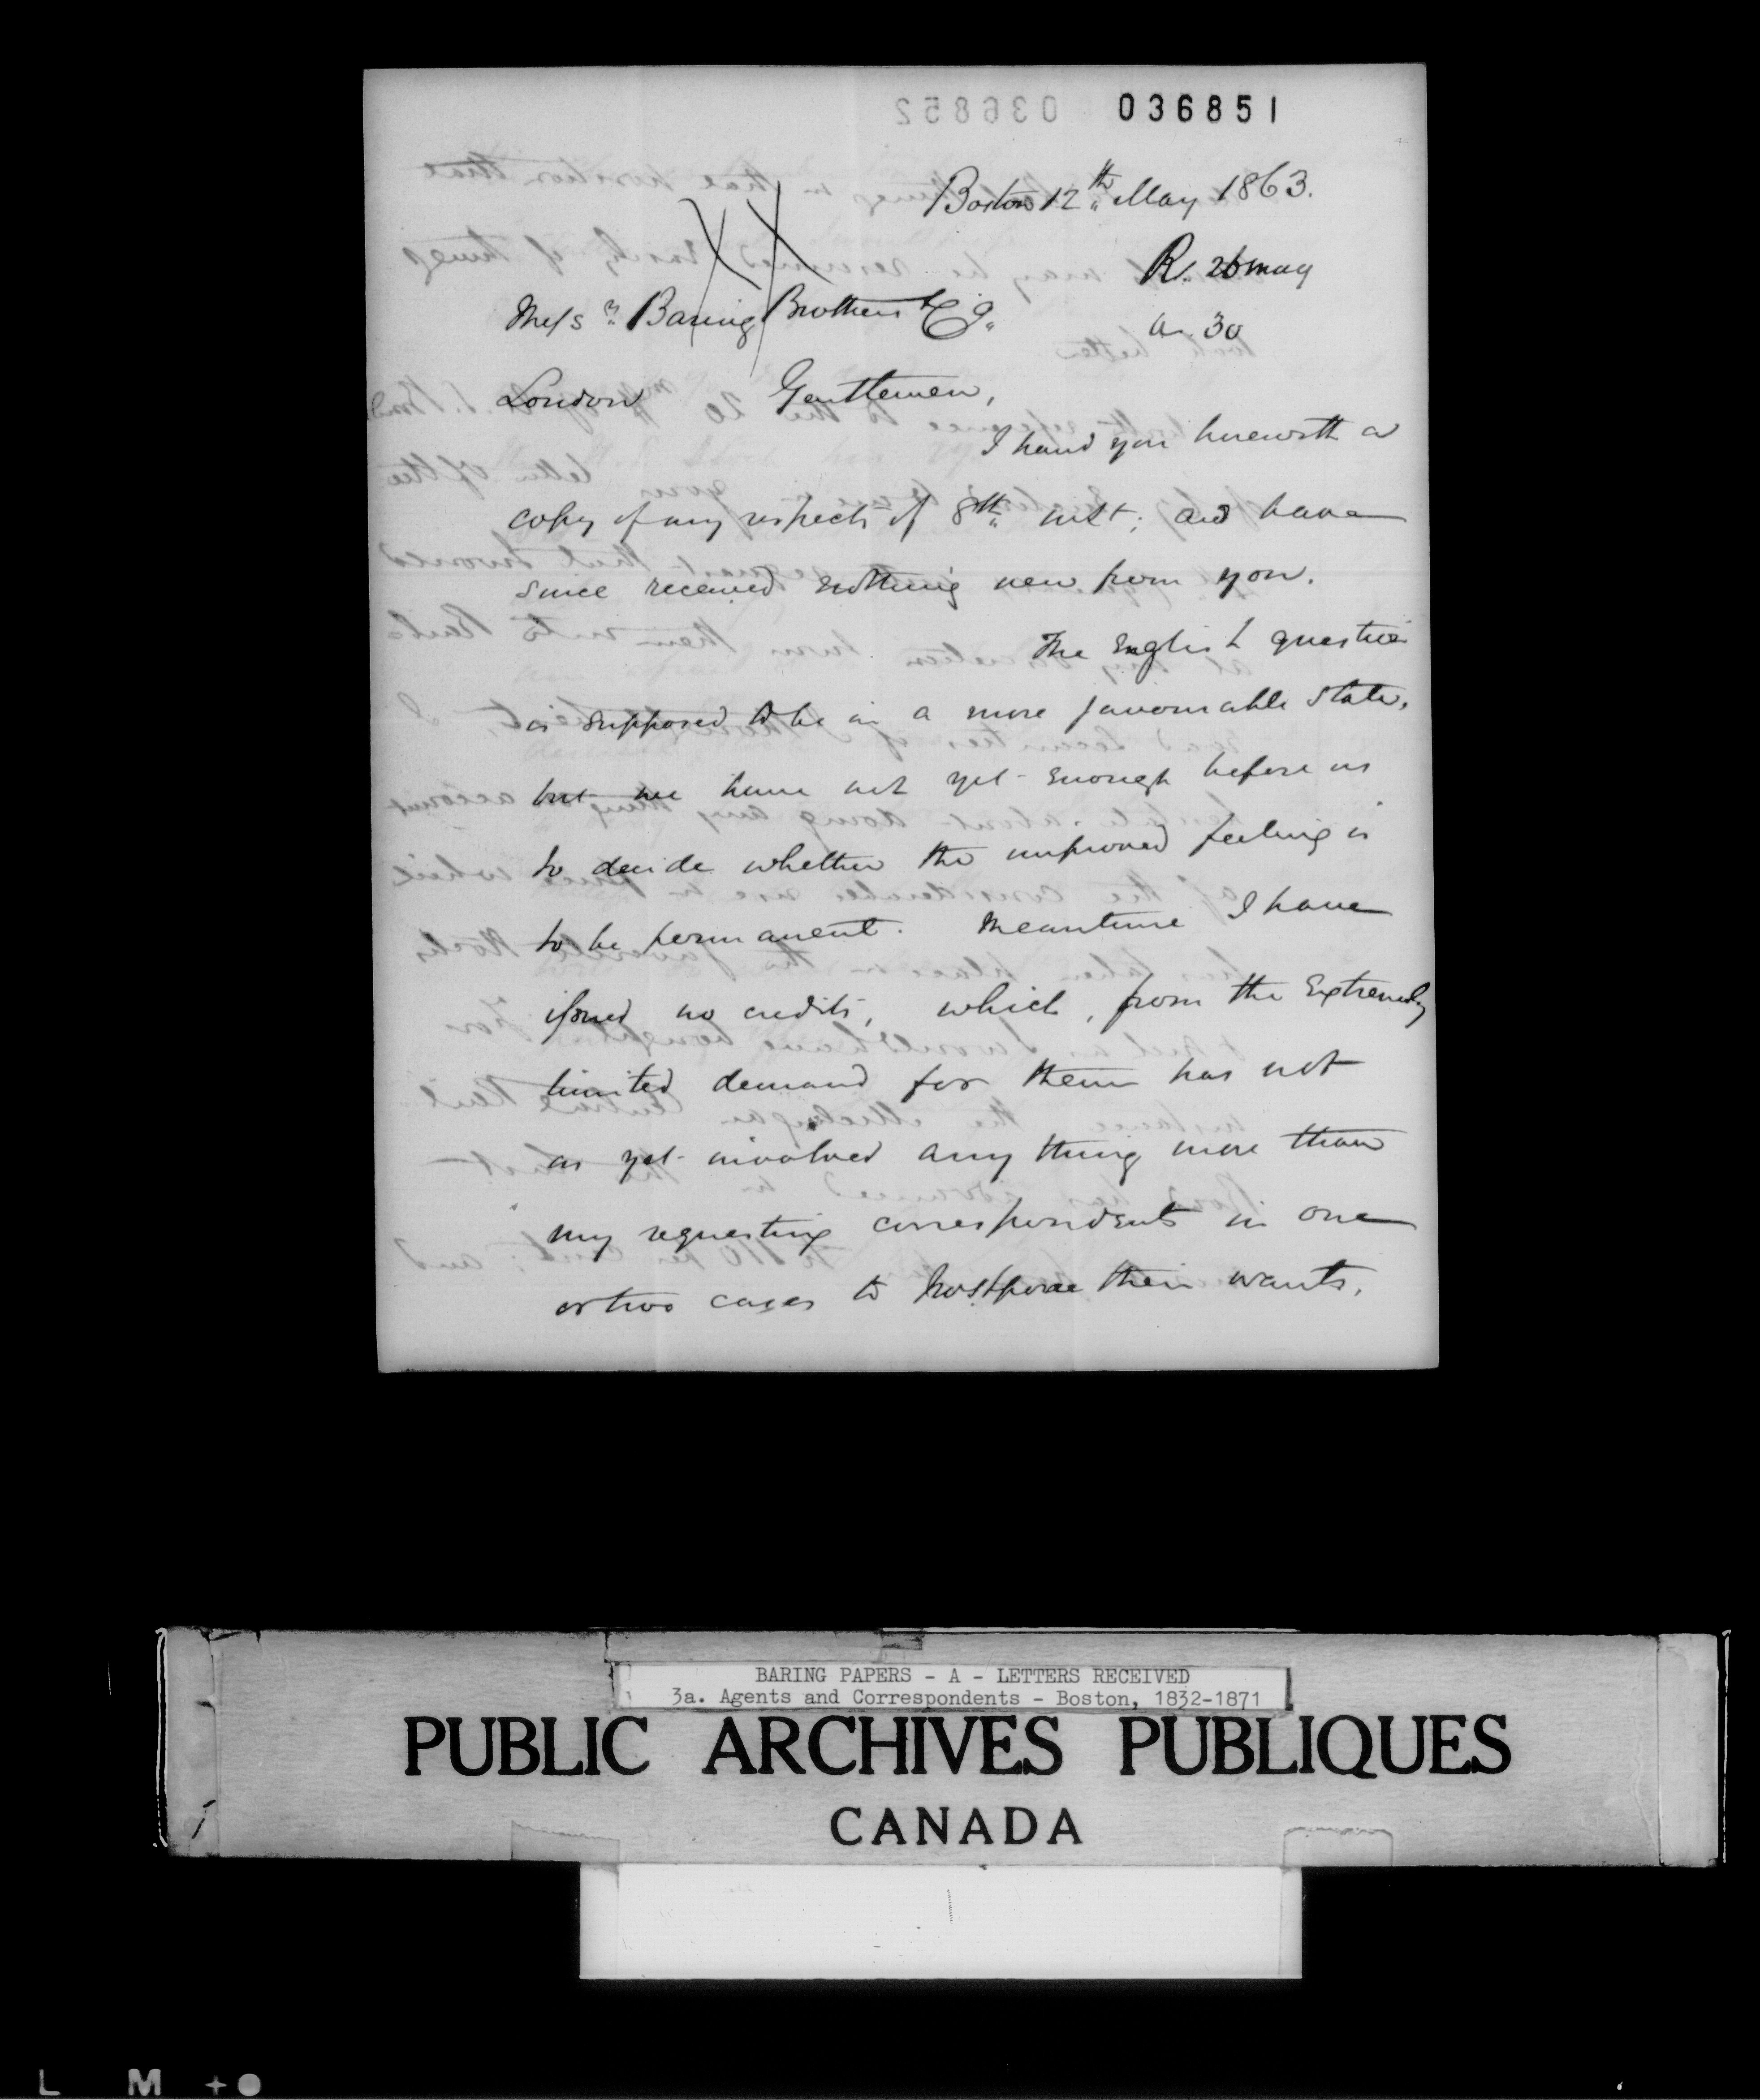 036851
Boston 12th May 1863.
R. 26 May
a 30
Messrs Baring Brothers & Co.
London Gentlemen,
I hand you herewith a
copy of my respects of 8th inst; and have
since received nothing new from you.
The English question
is supposed to be in a more favourable state,
but we have not yet enough before us
to decide whether the improved feeling is
to be permanent. Meantime I have
issued no credits, which, from the extremely
limited demand for them has not
as yet involved any thing more than
my requesting correspondents in one
or two cases to postpone their wants.
BARING PAPERS - A - LETTERS RECEIVED
3a. Agents and Correspondents - Boston, 1832-1871
PUBLIC ARCHIVES PUBLIQUES
CANADA
L M +